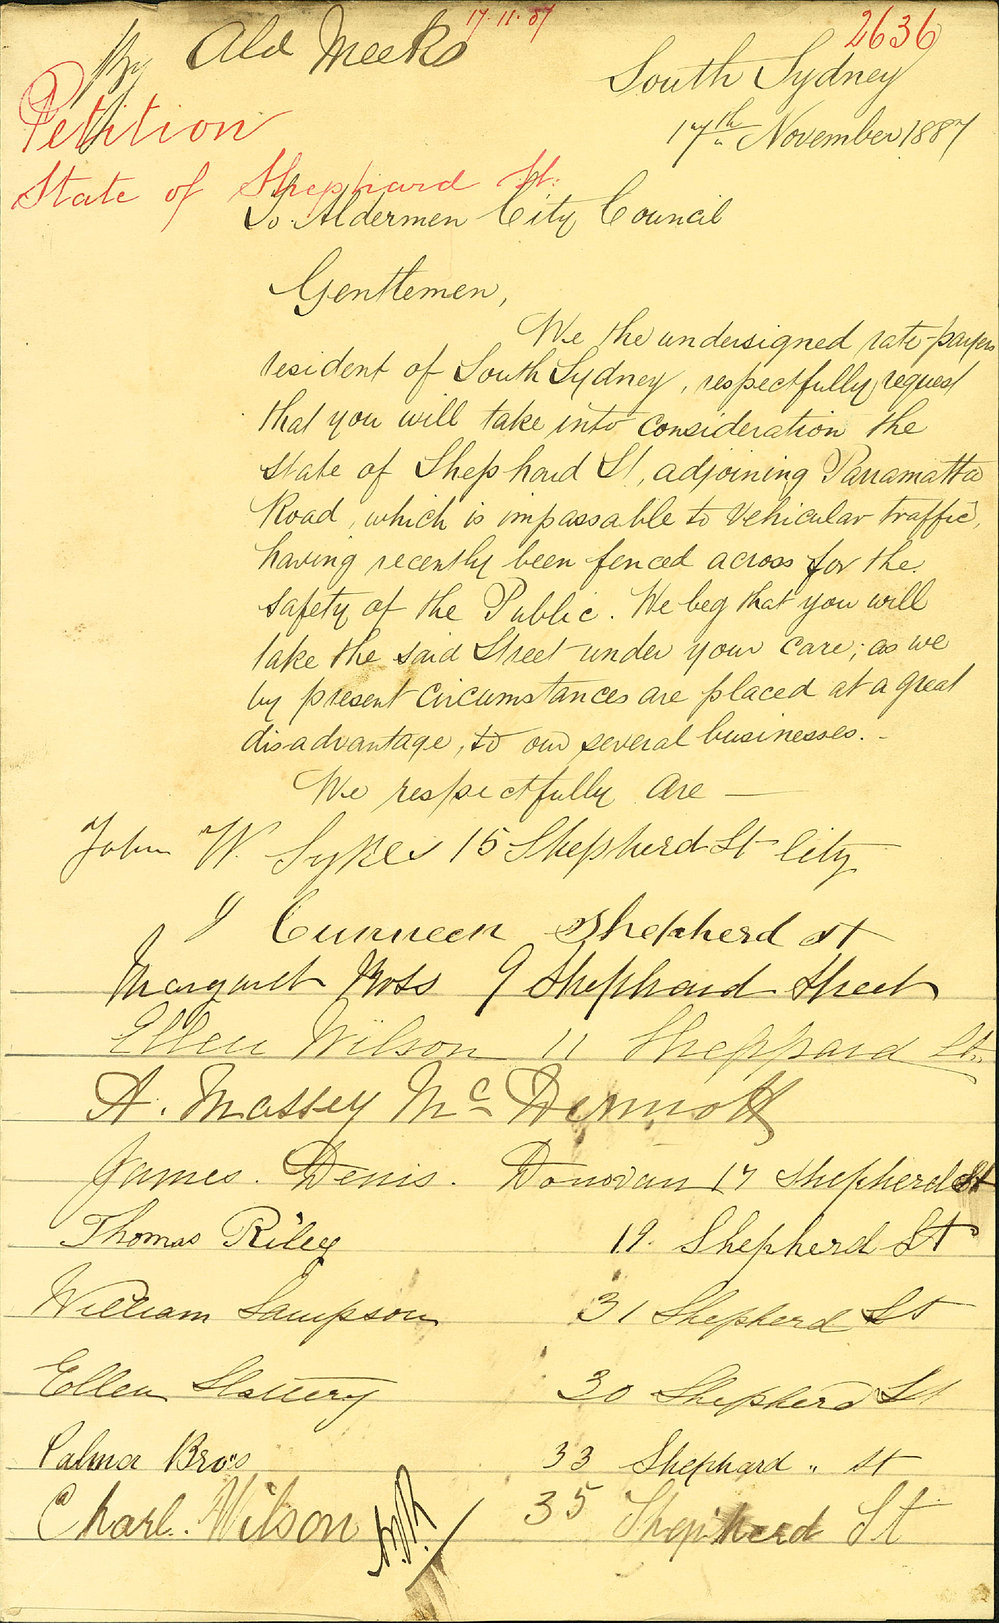 17.11.87
2636
By Ald Meeks
South Sydney
Petition
17th November 1887
State of Sheppard St:
To Aldermen City Council
Gentlemen,
We the undersigned rate-payers
resident of South Sydney, respectfully request
that you will take into consideration the
state of Shephard St, adjoining Parramatta
Road, which is impassable to vehicular traffic,
having recently been fenced across for the
safety of the Public. We beg that you will
take the said Street under your care; as we
by present circumstances are placed at a great
disadvantage, to our several businesses.-
We respectfully are —
John W. Sykes 15 Shepherd St City
J Cunneen Shepherd St
Margaret Moss 9 Shephard Street
Ellen Wilson 11 Sheppard St.
A. Massey Mc Dermott
James. Denis. Donovan 17 Shepherd St
Thomas Riley 19. Shepherd St
William Sampson 31 Shepherd St
Ellen Slattery 30 Shepherd St
Palmer Bro's 33 Shephard " St
Charl. Wilson 35 Shepherd St